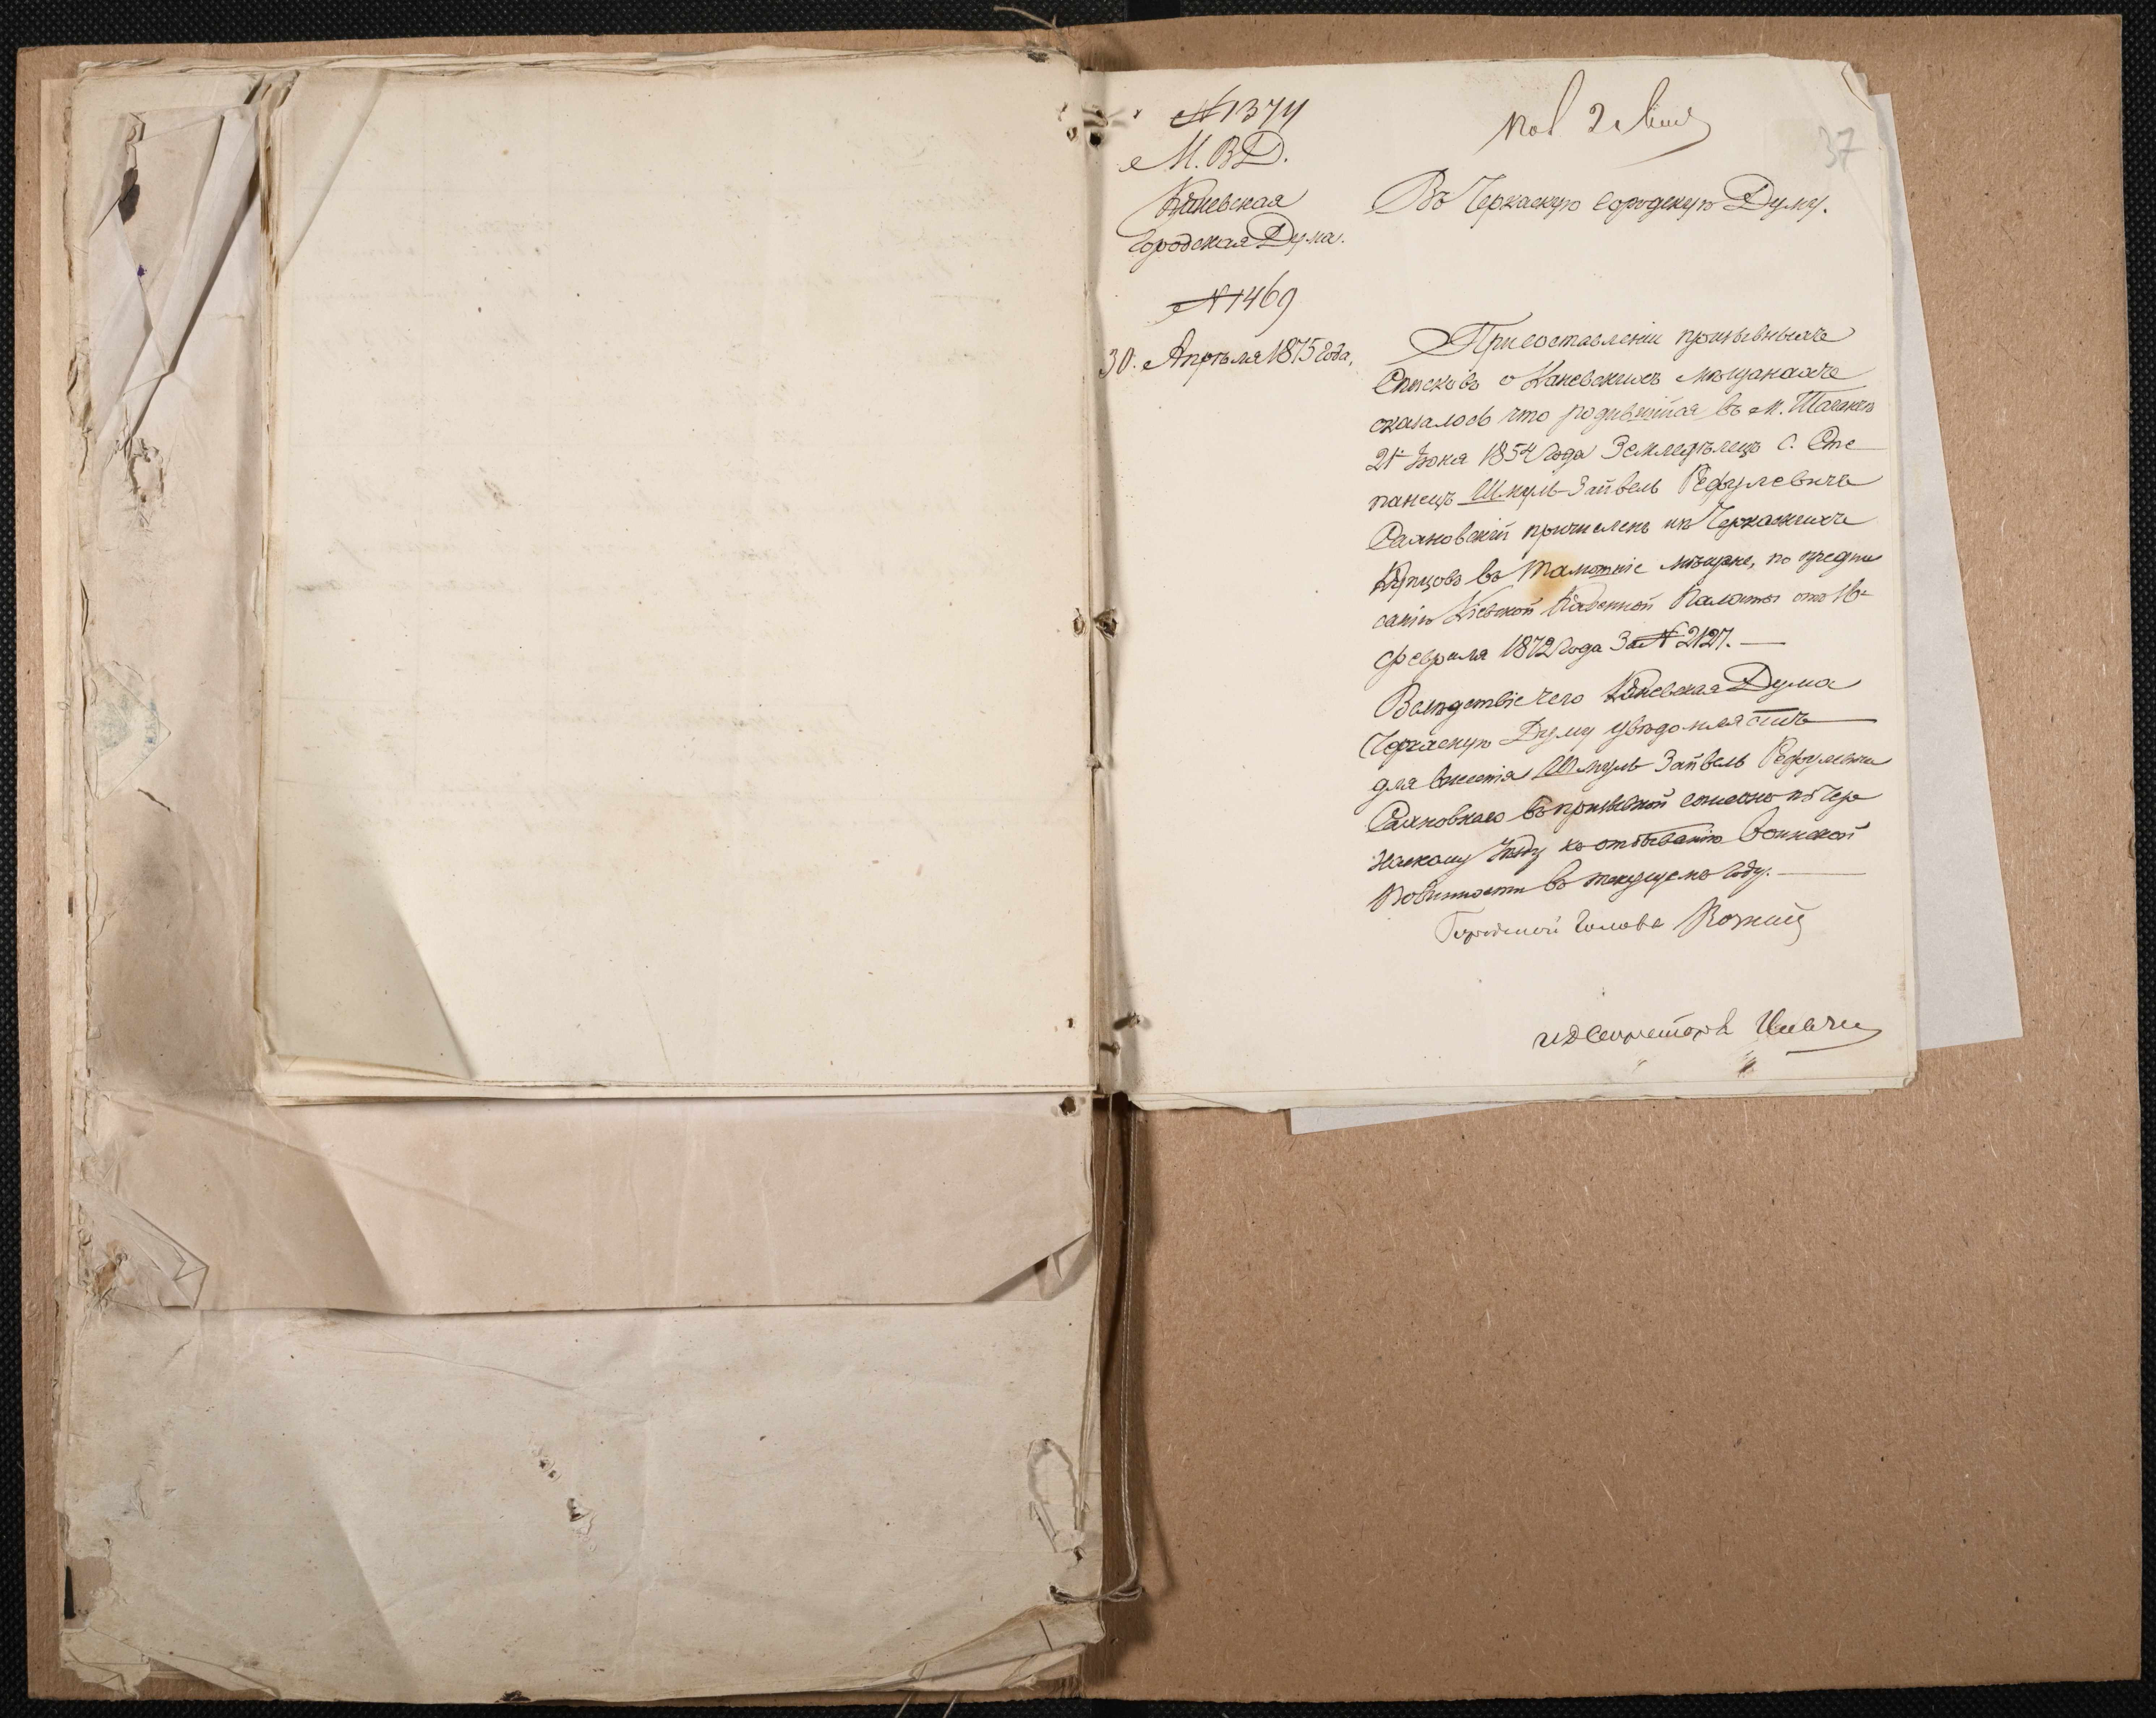 № 1374
М. В. Д.
Каневская
Городская Дума.
№ 1469
30. Апрѣля 1875 года.
37
Въ Черкаскую городскую Думу.
При составленіи призывныхъ
Списковъ о Каневскихъ мѣщанахъ
оказалось что родившійся въ м.
21 Іюня 1854 года Земледѣлецъ с. Сте
панецъ Шмуль-Зайвель
причисленъ изъ Черкаскихъ
Купцовъ въ тамошніе мѣщане, по предпи
санію Кіевской Казенной Палаты отъ 16
Февраля 1872 года За № 2127. —
Вслѣдствіе чего Каневская Дума
Черкаскую Думу увѣдомляетъ
для внесенія Шмуль-Зайвель
въ призывной списокъ по Чер
каскому Уѣзду къ отбыванію воинской
Повинности въ текущемъ году. —
Городской Голова
ИД Секретаря